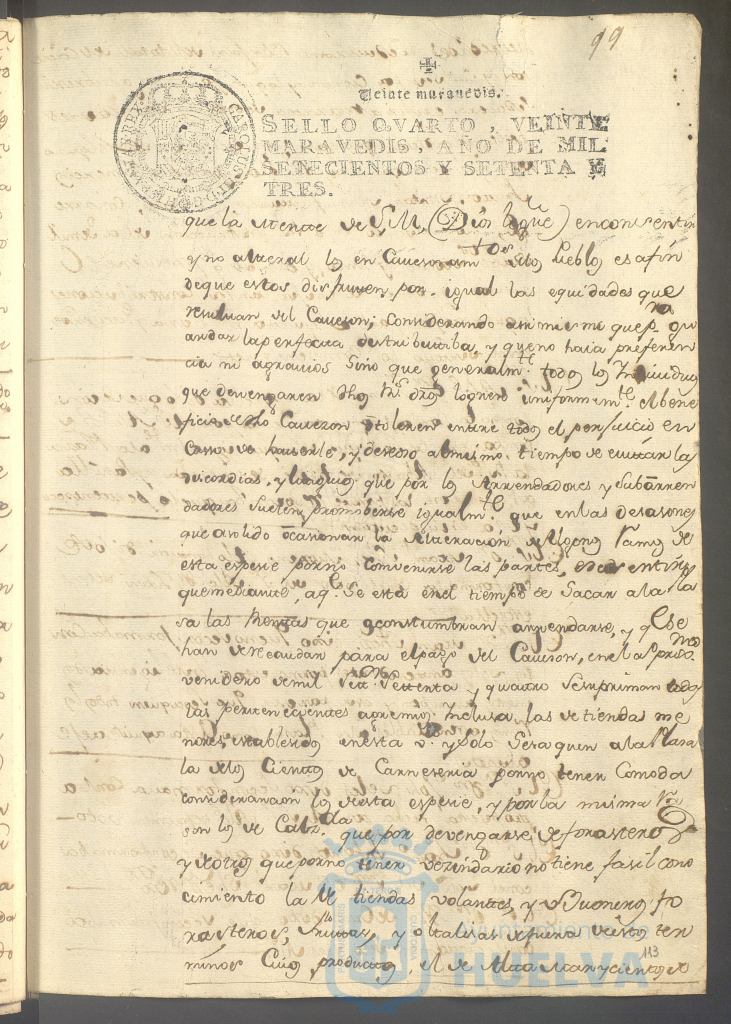 99
Veinte maravedis.
SELLO QVARTO, VEINTE
MARAVEDIS, AÑO DE MIL
SETECIENTOS Y SETENTA Y
TRES.
CAROLUS III D G HISPANIAR REX
que la mente de S. M. (Dios le gue) en consentir
y no alterar los en Cavesonam.tos de los Pueblos es a fin
de que estos disfruten por igual las equidades que
resultan del Caveson; considerando asi mismo que p.ra gu
andar la perfecta destributiba, y que no haia preferen
cia ni agravios sino que generalm.te todos los Individuos
que devengaren dhos R.s dros logren uniformem.te el bene
ficio de dho Caveson toleren entre todos el perjuicio en
caso de haverlo, y deseoso al mismo tiempo de evitar las
discordias, y que por los Arrendadores y Subarren
dadores suelen promoberse igualm.te que en las desasones
que a solido ocasionar la alteracion de algunos Ramos de
esta espesie por no convenirse las partes,
que mediante, a q.e se está en el tiempo de sacar a la
sa las Rentas que acostumbran arrendarse, y q.e se
han de recaudar para el pago del Caveson, en el año prox.mo
venidero de mil Sett.os Settenta y quatro se supriman todos
las pertenecientes a gremios, Inclusa las de tiendas me
nores establesidos en esta v.a y solo se saquen a la Plasa
la de los Cientos de Carneseria por no tener Comoda
consideracion los de esta espesie, y por la misma Ra
son los de Calz.da que por devengarse de forasteros
y de otros que por no tener vezindario no tiene fasil cono
cimiento la de tiendas volantes, y Buoneros fo
rasteros, frutas, y otalisas de fuera de estos ter
minos Cuios productos, el de Alta y cientos de
113
Ayuntamiento de
HUELVA